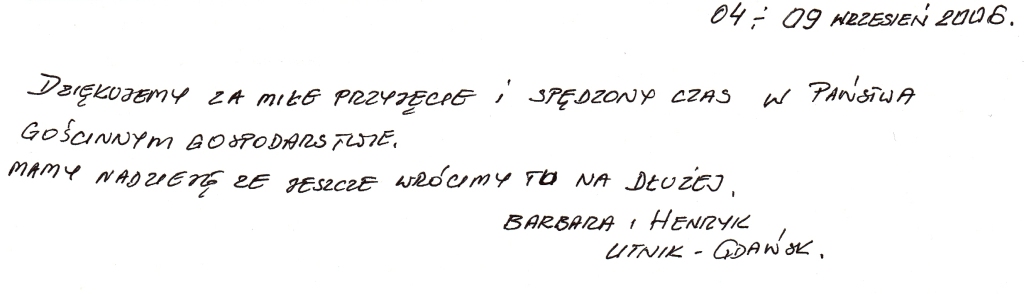 04 ÷ 09 WRZESIEŃ 2006.
DZIĘKUJEMY ZA MIŁE PRZYJĘCIE i SPĘDZONY CZAS W PAŃSTWA
GOŚCINNYM GOSPODARSTWIE.
MAMY NADZIEJĘ ZE JESZCZE WRÓCIMY TU NA DŁUŻEJ.
BARBARA i HENRYK
UTNIK - GDAŃSK.